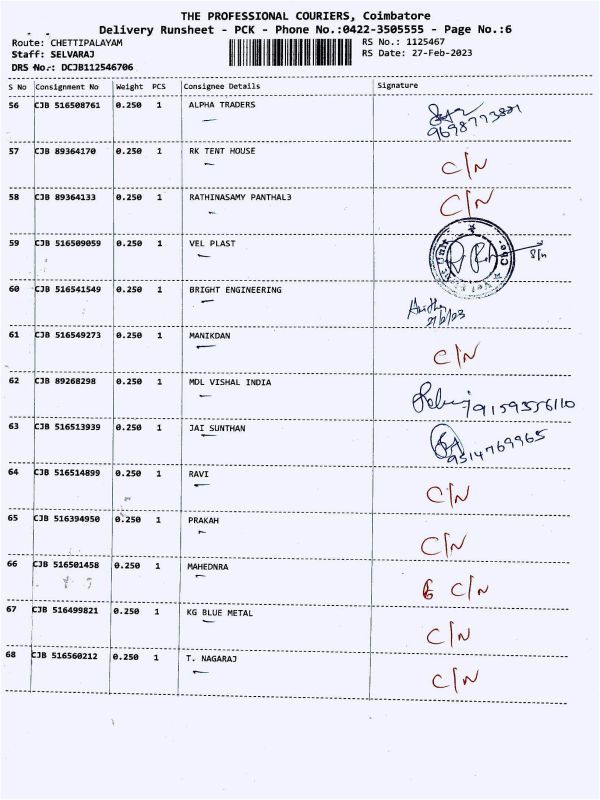 THE PROFESSIONAL COURIERS, Coimbatore
Delivery Runsheet - PCK - Phone No.:0422-3505555 - Page No.:6
Route: CHETTIPALAYAM RS No.: 1125467
Staff: SELVARAJ RS Date: 27-Feb-2023
DRS No.: DCJB112546706
S No Consignment No Weight PCS Consignee Details Signature
56 CJB 516508761 0.250 1 ALPHA TRADERS
57 CJB 89364170 0.250 1 RK TENT HOUSE C/N
58 CJB 89364133 0.250 1 RATHINASAMY PANTHAL3 C/N
59 CJB 516509059 0.250 1 VEL PLAST
60 CJB 516541549 0.250 1 BRIGHT ENGINEERING
61 CJB 516549273 0.250 1 MANIKDAN C/N
62 CJB 89268298 0.250 1 MDL VISHAL INDIA 9159356110
63 CJB 516513939 0.250 1 JAI SUNTHAN 9514769965
64 CJB 516514899 0.250 1 RAVI C/N
65 CJB 516394950 0.250 1 PRAKAH C/N
66 CJB 516501458 0.250 1 MAHEDNRA C/N
67 CJB 516499821 0.250 1 KG BLUE METAL C/N
68 CJB 516560212 0.250 1 T. NAGARAJ C/N